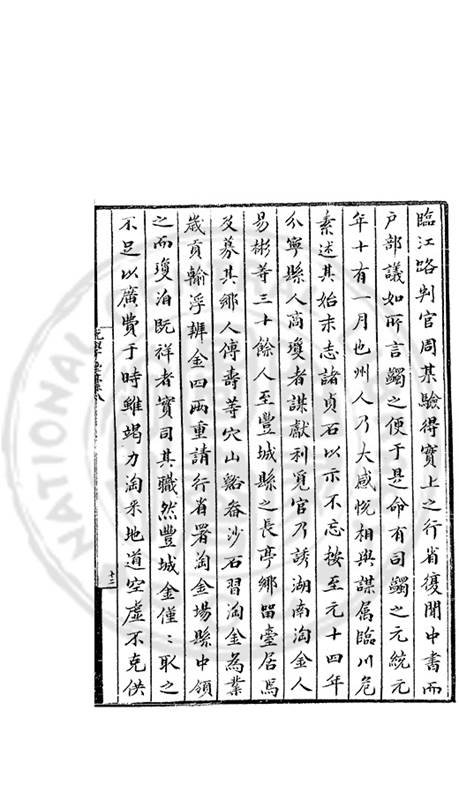 臨江路判官周某驗得實上之行省復聞中書而
戶部議如所言蠲之便于是命有司蠲之元統元
年十有一月也州人乃大感悅相與謀属臨川危
素述其始末志諸貞石以示不忘按至元十四年
分寧縣人商瓊者謀獻利覓官乃誘湖南淘金人
易彬等三十餘人至豐城縣之長亭鄉畱臺居焉
又募其鄉人傅壽等穴山谿畚沙石習淘金為業
歲貢輸浮辦金四兩重請行省署淘金場縣中領
之而瓊洎阮祥者實司其職然豐城金僅〻取之
不足以廣費于時雖竭力淘采地道空虛不克供
十三
NATIONAL